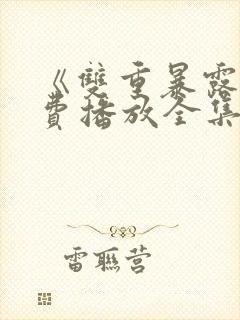 《雙重暴露
費播放全集
雷聯营